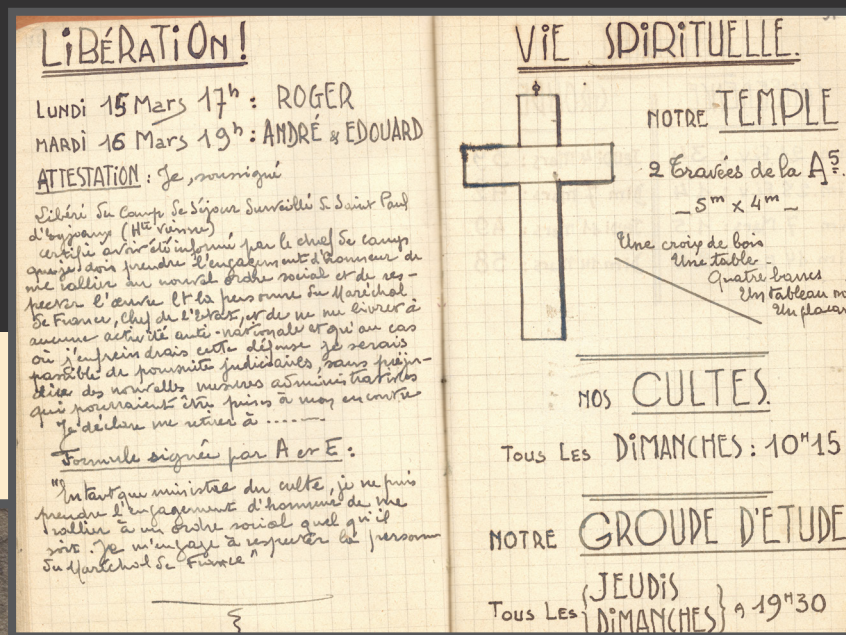 LIBÉRATION !
LUNDI 15 Mars 17h : ROGER
MARDI 16 Mars 19h : ANDRÉ & EDOUARD
ATTESTATION : Je, soussigné
Libéré du Camp de Séjour Surveillé de Saint Paul
d'Eyjeaux (Hte Vienne)
certifie avoir été informé par le chef de camp
que je dois prendre l'engagement d'honneur de
me rallier au nouvel ordre social et de res-
pecter l'œuvre et la personne du Maréchal
de France, Chef de l'Etat, et de ne me livrer à
aucune activité anti-nationale et qu'au cas
où j'enfreindrais cette défense je serais
passible de poursuites judiciaires, sans préju-
dice des nouvelles mesures administratives
qui pourraient être prises à mon encontre
Je déclare me retirer à ........
Formule signée par A et E :
"En tant que ministre du culte, je ne puis
prendre l'engagement d'honneur de me
rallier à un ordre social quel qu'il
soit. Je m'engage à respecter la personne
du Maréchal de France"
VIE SPIRITUELLE.
NOTRE TEMPLE
2 Travées de la A5.
_ 5m x 4m _
Une croix de bois
Une table -
Quatre bancs
Un tableau
Un
NOS CULTES.
TOUS LES DIMANCHES : 10H15
NOTRE GROUPE D'ETUDE
TOUS LES { JEUDIS
DIMANCHES } A 19H30